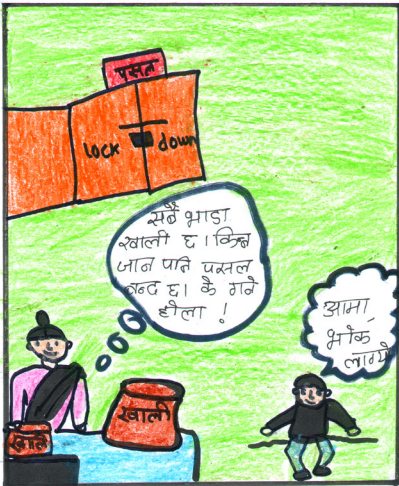 पसल
Lock down
सबै भाडा
खाली छ। किन्न
जान पनि पसल
बन्द छ। कै गरे
होला !
आमा,
भोक
लाग्यो
खाली
खाली